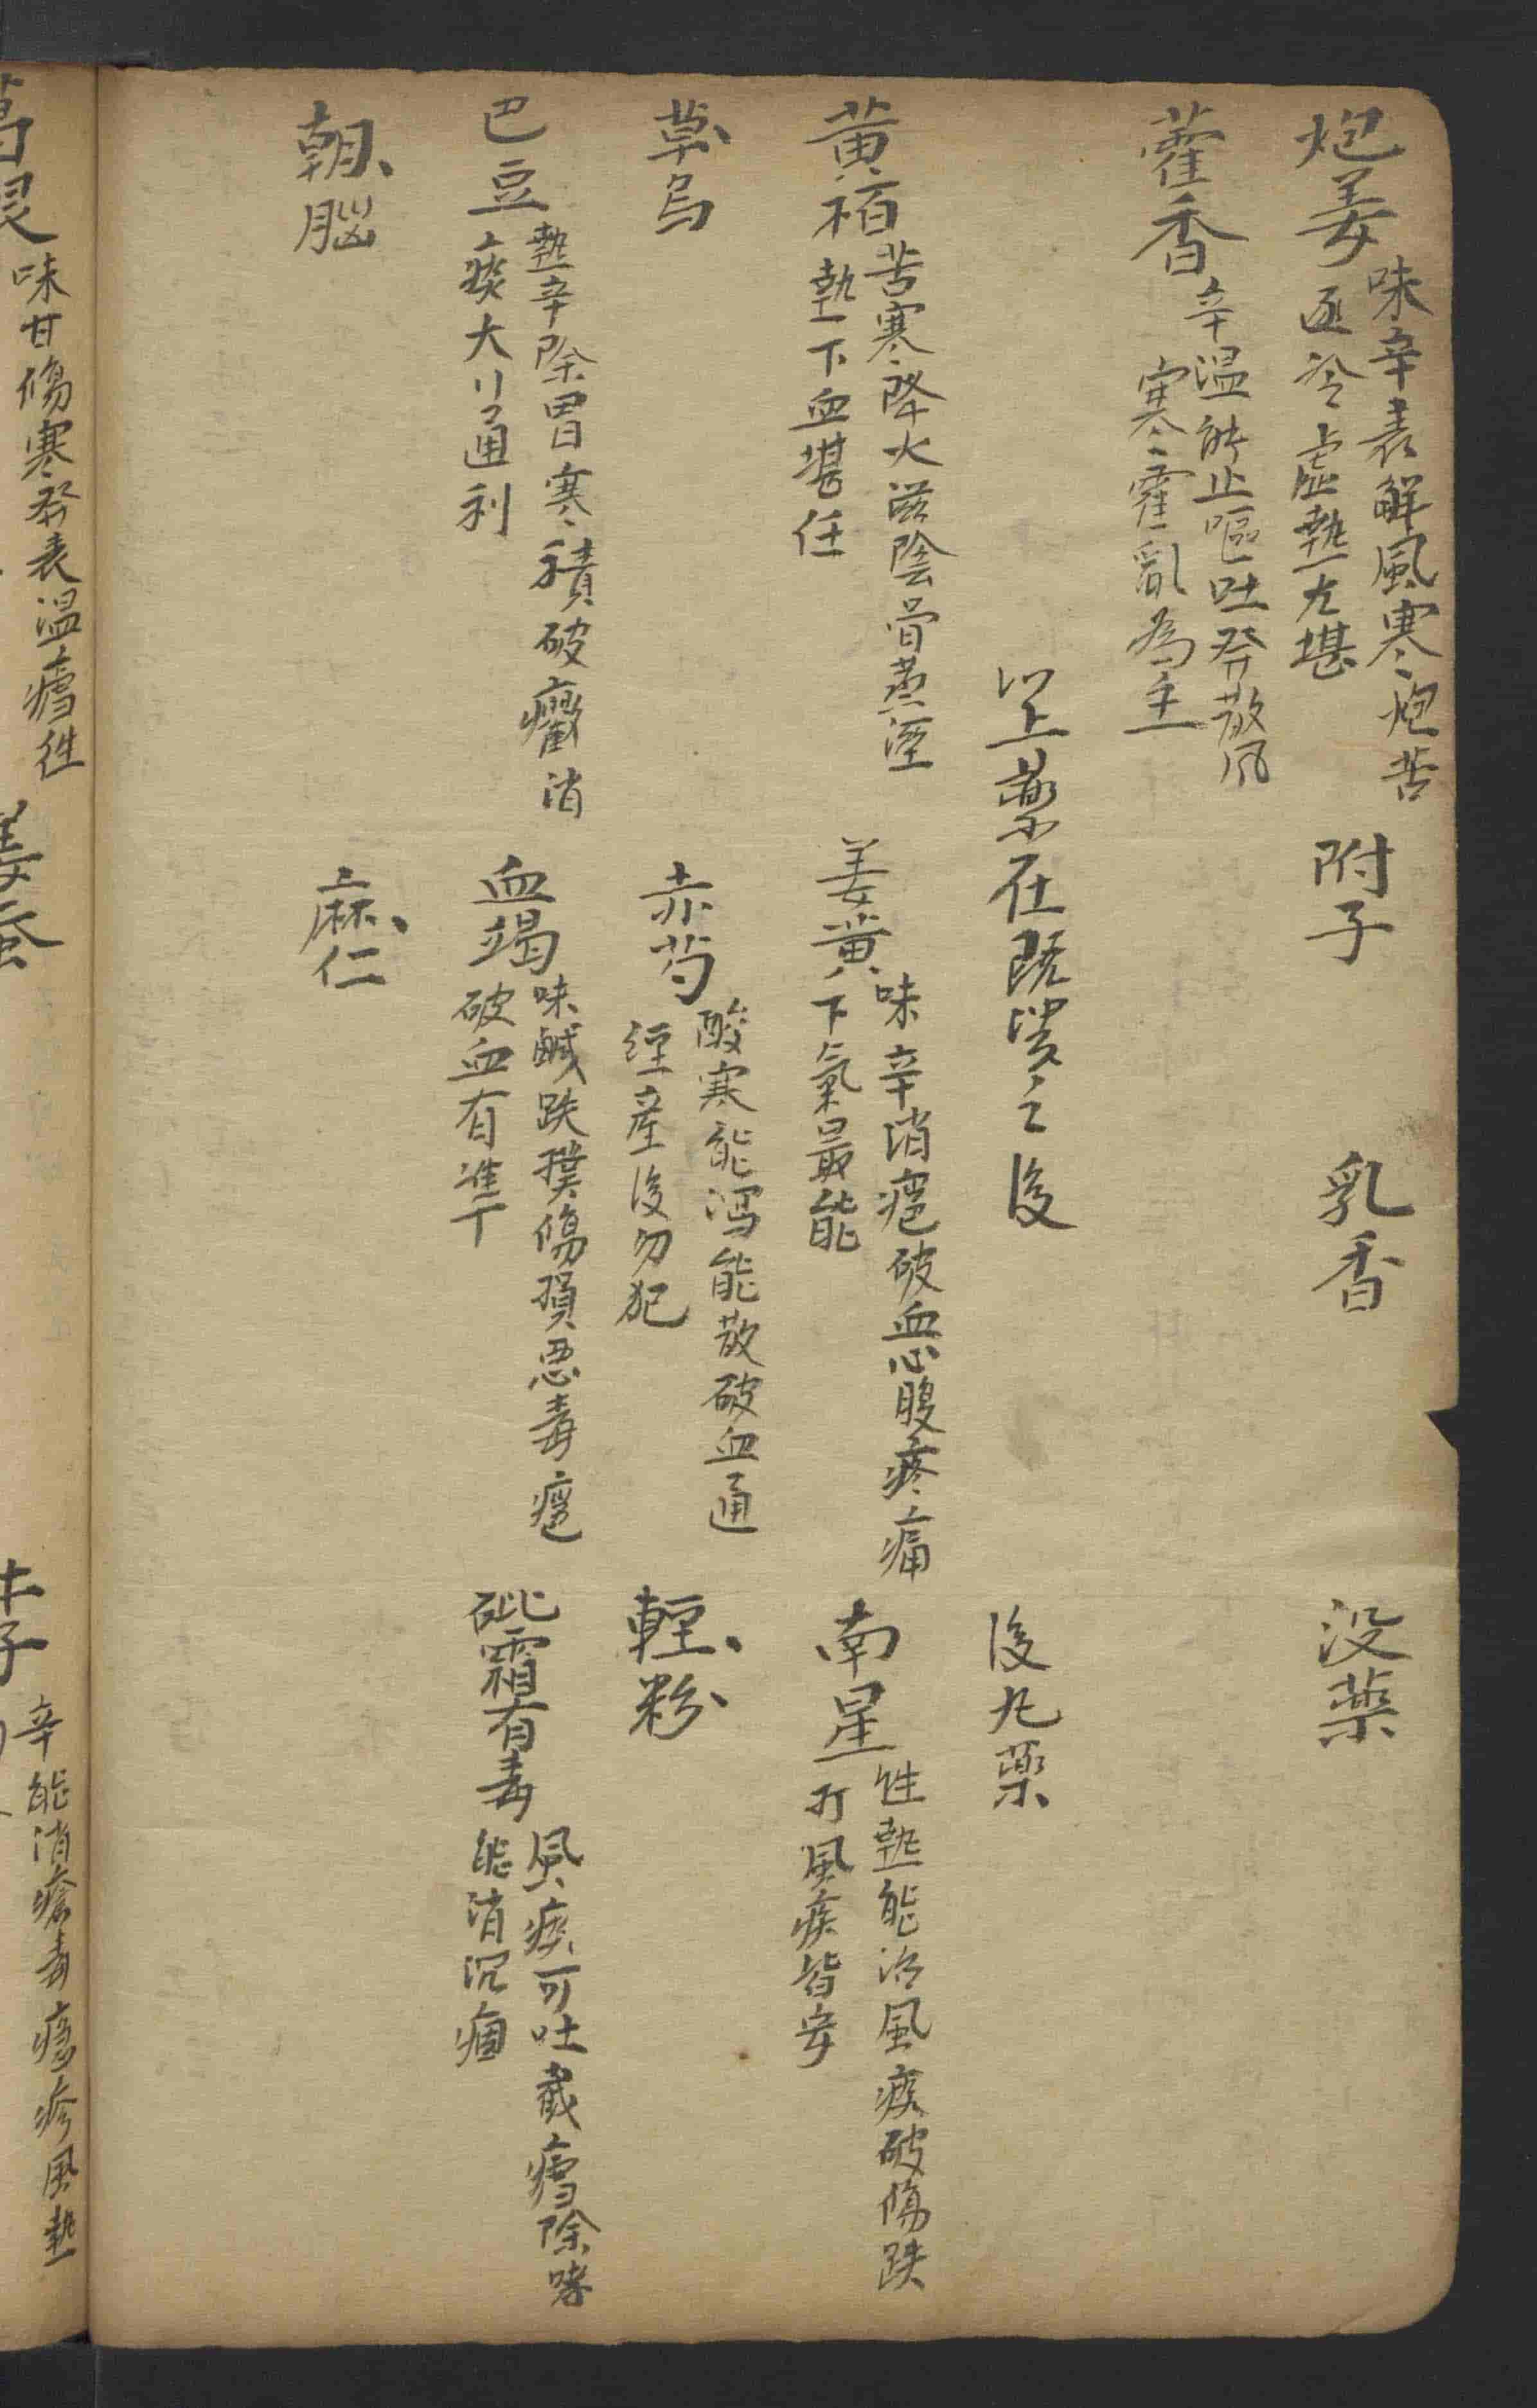 炮姜 味辛表解風寒炮苦
逐冷虛熱尤堪
附子
乳香
没薬
藿香 辛温能止嘔吐發散风
寒霍亂為主
以上薬在既潰之後
後九薬
黄栢 苦寒降火滋陰骨蒸湿
熱下血堪任
姜黄 味辛消癰破血心腹疼痛
下氣最能
南星 性熱能治風痰破傷跌
打風疾皆安
草烏
赤芍 酸寒能泻能散破血通
經産後勿犯
輕粉
巴豆 熱辛除胃寒積破癥消
痰大리通利
血竭 味鹹跌撲傷損惡毒瘡
破血有準
砒霜有毒 風痰可吐截瘧除哮
能消沉痼
朝腦
麻仁
葛根 味甘傷寒發表温瘧往
姜蚕
子 辛能消瘡毒癮疹風熱